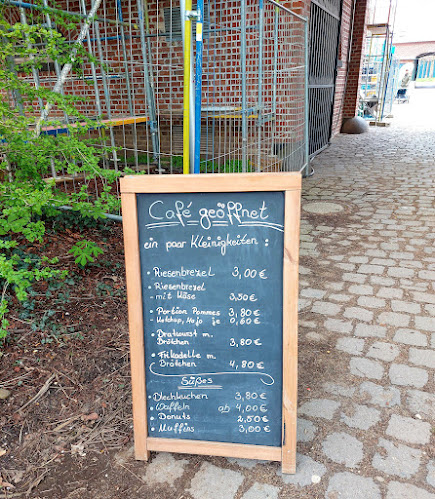 Café geöffnet
ein paar Kleinigkeiten :
• Riesenbrezel 3,00 €
• Riesenbrezel
- mit Käse 3,50 €
• Portion Pommes 3,80 €
Ketchup, Mayo je 0,60 €
• Bratwurst m.
Brötchen 3,80 €
• Frikadelle m.
Brötchen 4,80 €
Süßes
• Blechkuchen 3,80 €
• Waffeln ab 4,00 €
• Donuts 2,50 €
• Muffins 3,00 €